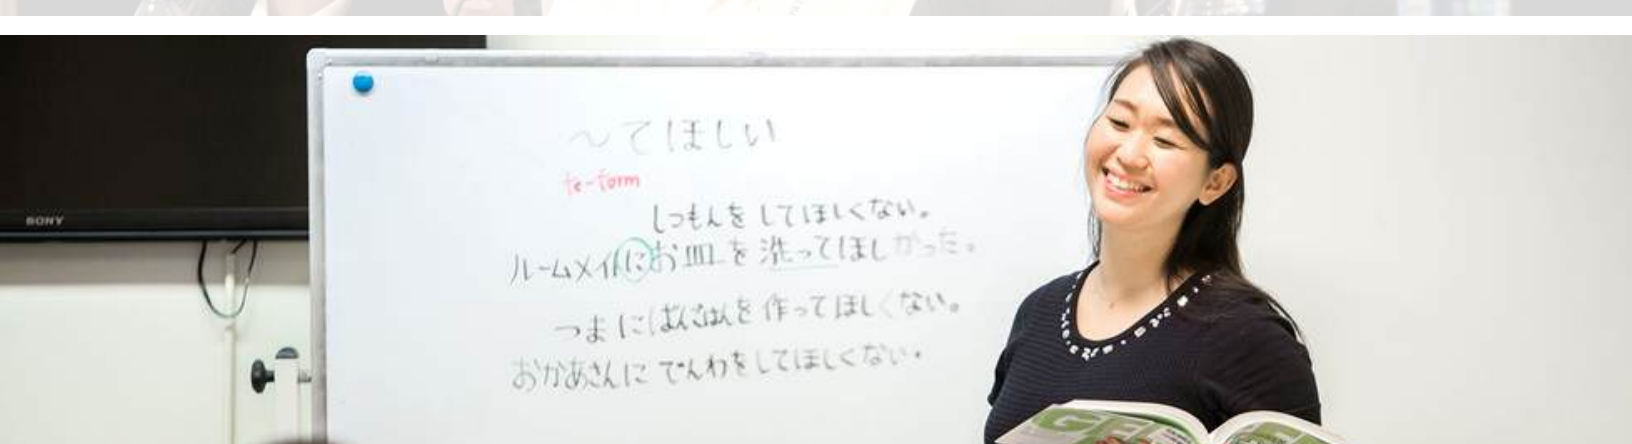 SONY
～てほしい
te-form
しつもんをしてほしくない。
ルームメイトにお皿を洗ってほしかった。
つまにばんごはんを作ってほしくない。
おかあさんにでんわをしてほしくない。